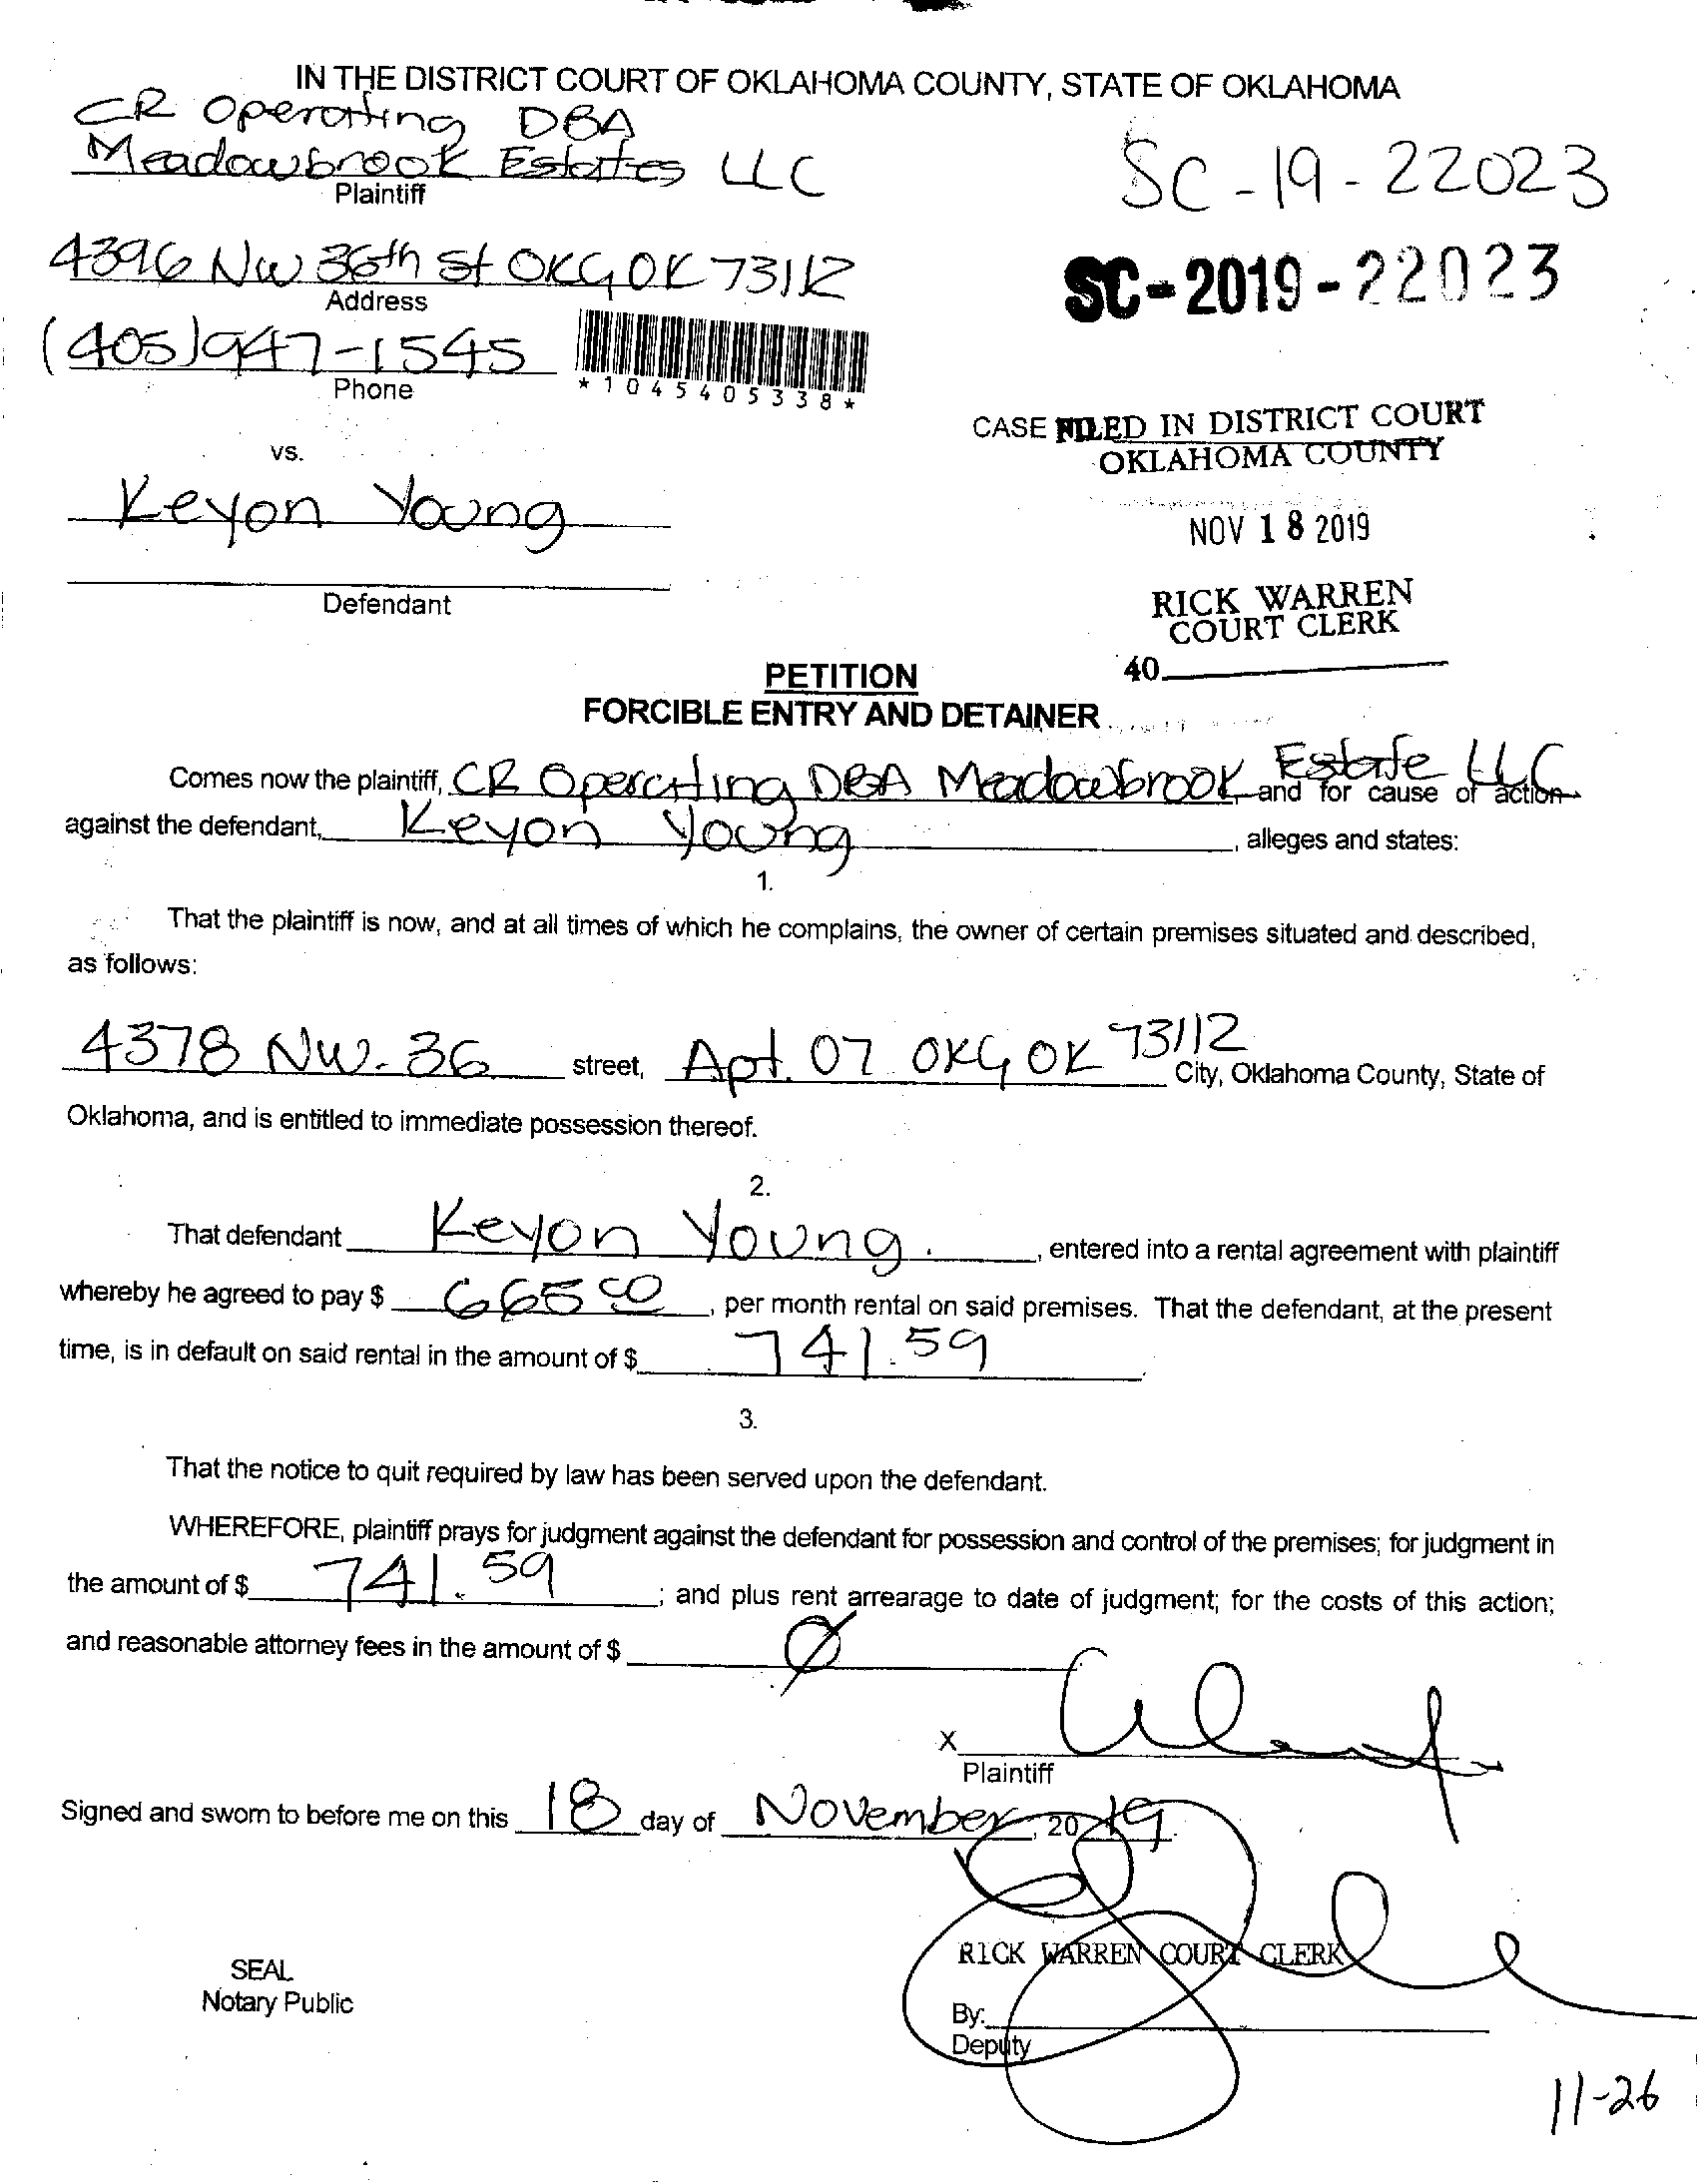 IN THE DISTRICT COURT OF OKLAHOMA COUNTY, STATE OF OKLAHOMA
CR Operating DBA
Meadowbrook Estates LLC
Plaintiff
SC-19-22023
4396 NW 36th St OKC OK 73112
Address
SC-2019-22023
(405)947-1545
Phone
*1045405338*
CASE FILED IN DISTRICT COURT
OKLAHOMA COUNTY
vs.
Keyon Young
NOV 18 2019
Defendant
RICK WARREN
COURT CLERK
40
PETITION
FORCIBLE ENTRY AND DETAINER
Comes now the plaintiff, CR Operating DBA Meadowbrook Estate LLC, and for cause of action
against the defendant, Keyon Young, alleges and states:
1.
That the plaintiff is now, and at all times of which he complains, the owner of certain premises situated and described,
as follows:
4378 NW. 36 street, Apt. 07 OKC OK 73112 City, Oklahoma County, State of
Oklahoma, and is entitled to immediate possession thereof.
2.
That defendant Keyon Young, entered into a rental agreement with plaintiff
whereby he agreed to pay $ 665 00, per month rental on said premises. That the defendant, at the present
time, is in default on said rental in the amount of $ 741.59.
3.
That the notice to quit required by law has been served upon the defendant.
WHEREFORE, plaintiff prays for judgment against the defendant for possession and control of the premises; for judgment in
the amount of $ 741.59; and plus rent arrearage to date of judgment; for the costs of this action;
and reasonable attorney fees in the amount of $ Ø
X
Plaintiff
Signed and sworn to before me on this 18 day of November, 2019.
RICK WARREN COURT CLERK
SEAL
Notary Public
By:
Deputy
11-26